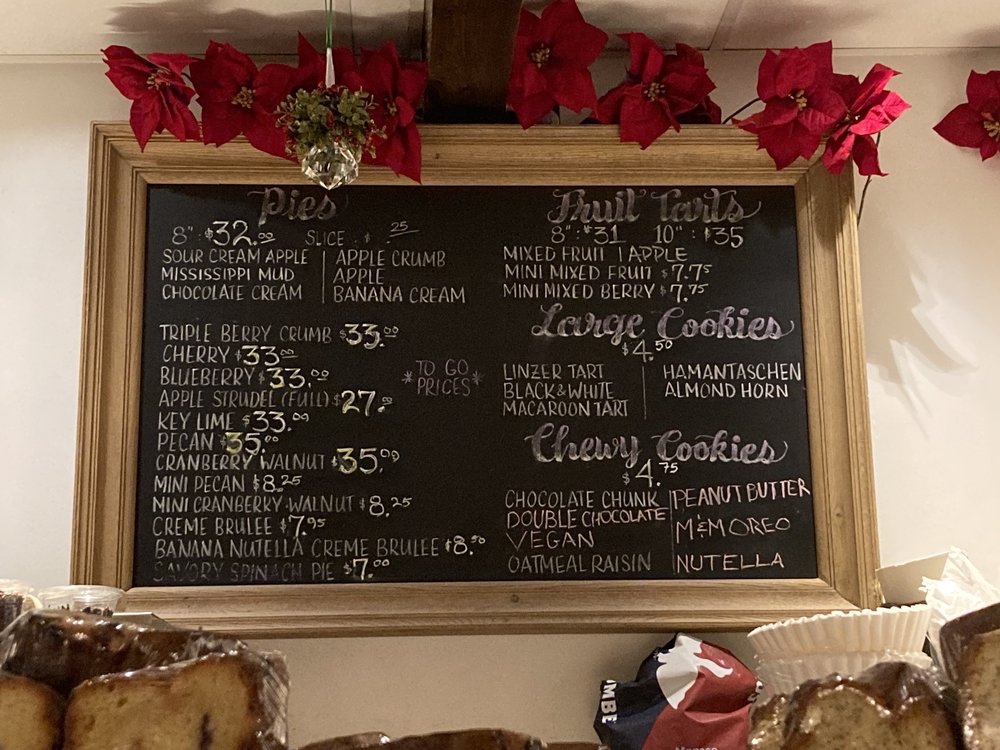 Pies
8": $32.00 SLICE: $ .25
SOUR CREAM APPLE
MISSISSIPPI MUD
CHOCOLATE CREAM
APPLE CRUMB
APPLE
BANANA CREAM
TRIPLE BERRY CRUMB $33.00
CHERRY $33.00
BLUEBERRY $33.00
APPLE STRUDEL (FULL) $27.00
KEY LIME $33.00
PECAN $35.00
CRANBERRY WALNUT $35.00
MINI PECAN $8.25
MINI CRANBERRY WALNUT $8.25
CREME BRULEE $7.95
BANANA NUTELLA CREME BRULEE $8.50
SAVORY SPINACH PIE $7.00
*TO GO
PRICES*
Fruit Tarts
8": $31 10": $35
MIXED FRUIT | APPLE
MINI MIXED FRUIT $7.75
MINI MIXED BERRY $7.75
Large Cookies
$4.50
LINZER TART
BLACK & WHITE
MACAROON TART
HAMANTASCHEN
ALMOND HORN
Chewy Cookies
$4.75
CHOCOLATE CHUNK
DOUBLE CHOCOLATE
VEGAN
OATMEAL RAISIN
PEANUT BUTTER
M&MOREO
NUTELLA